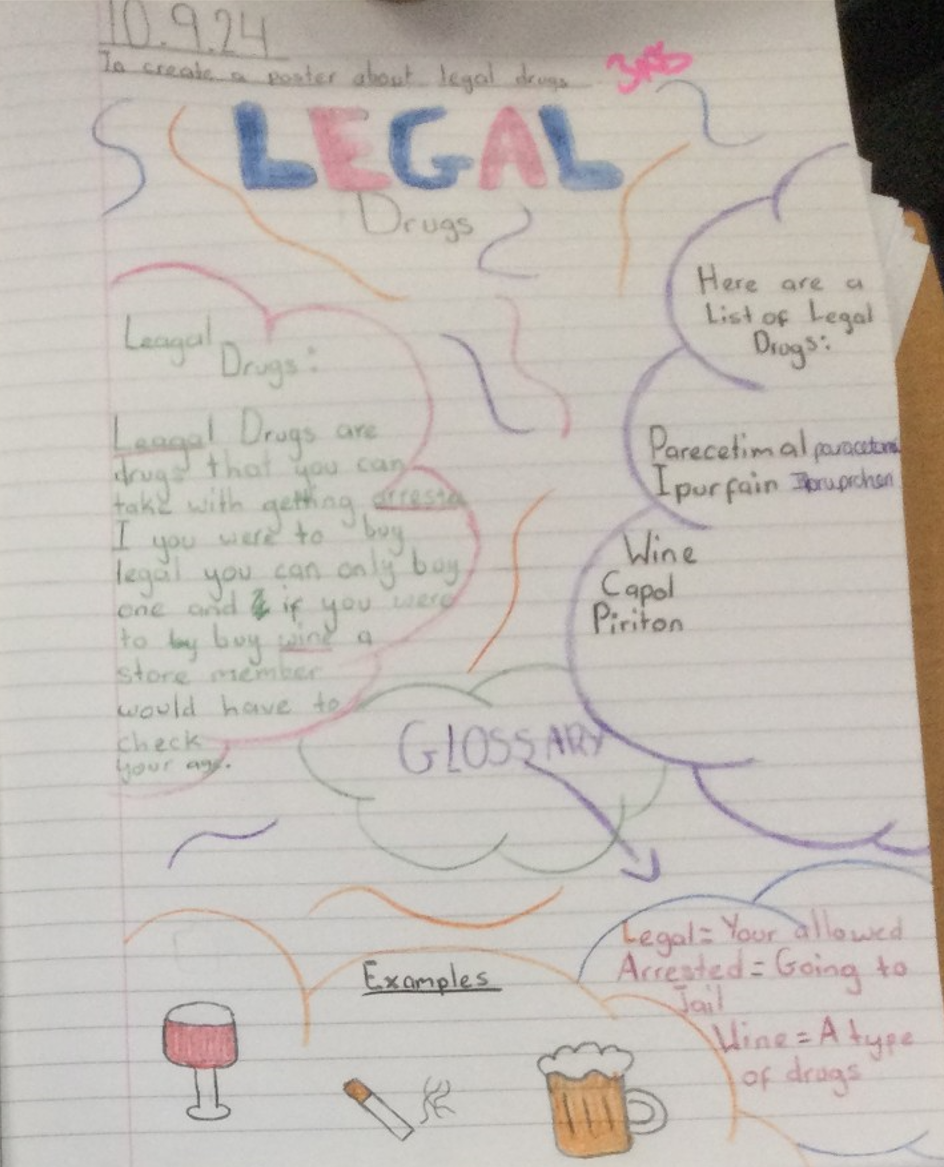 10.9.24
To create a poster about legal drugs
LEGAL
Drugs
Leagal
Drugs:
Leagal Drugs are
drugs that you can
take with getting arresta
I you were to buy
legal you can only buy
one and if you were
to by buy wine a
store member
would have to
check
your age.
Here are a
List of Legal
Drogs:
Parecetimal paracetamol
Ipurfain
Wine
Capol
Piriton
GLOSSARY
Legal = Your allowed
Arrested = Going to
Jail
Wine = A type
of drugs
Examples